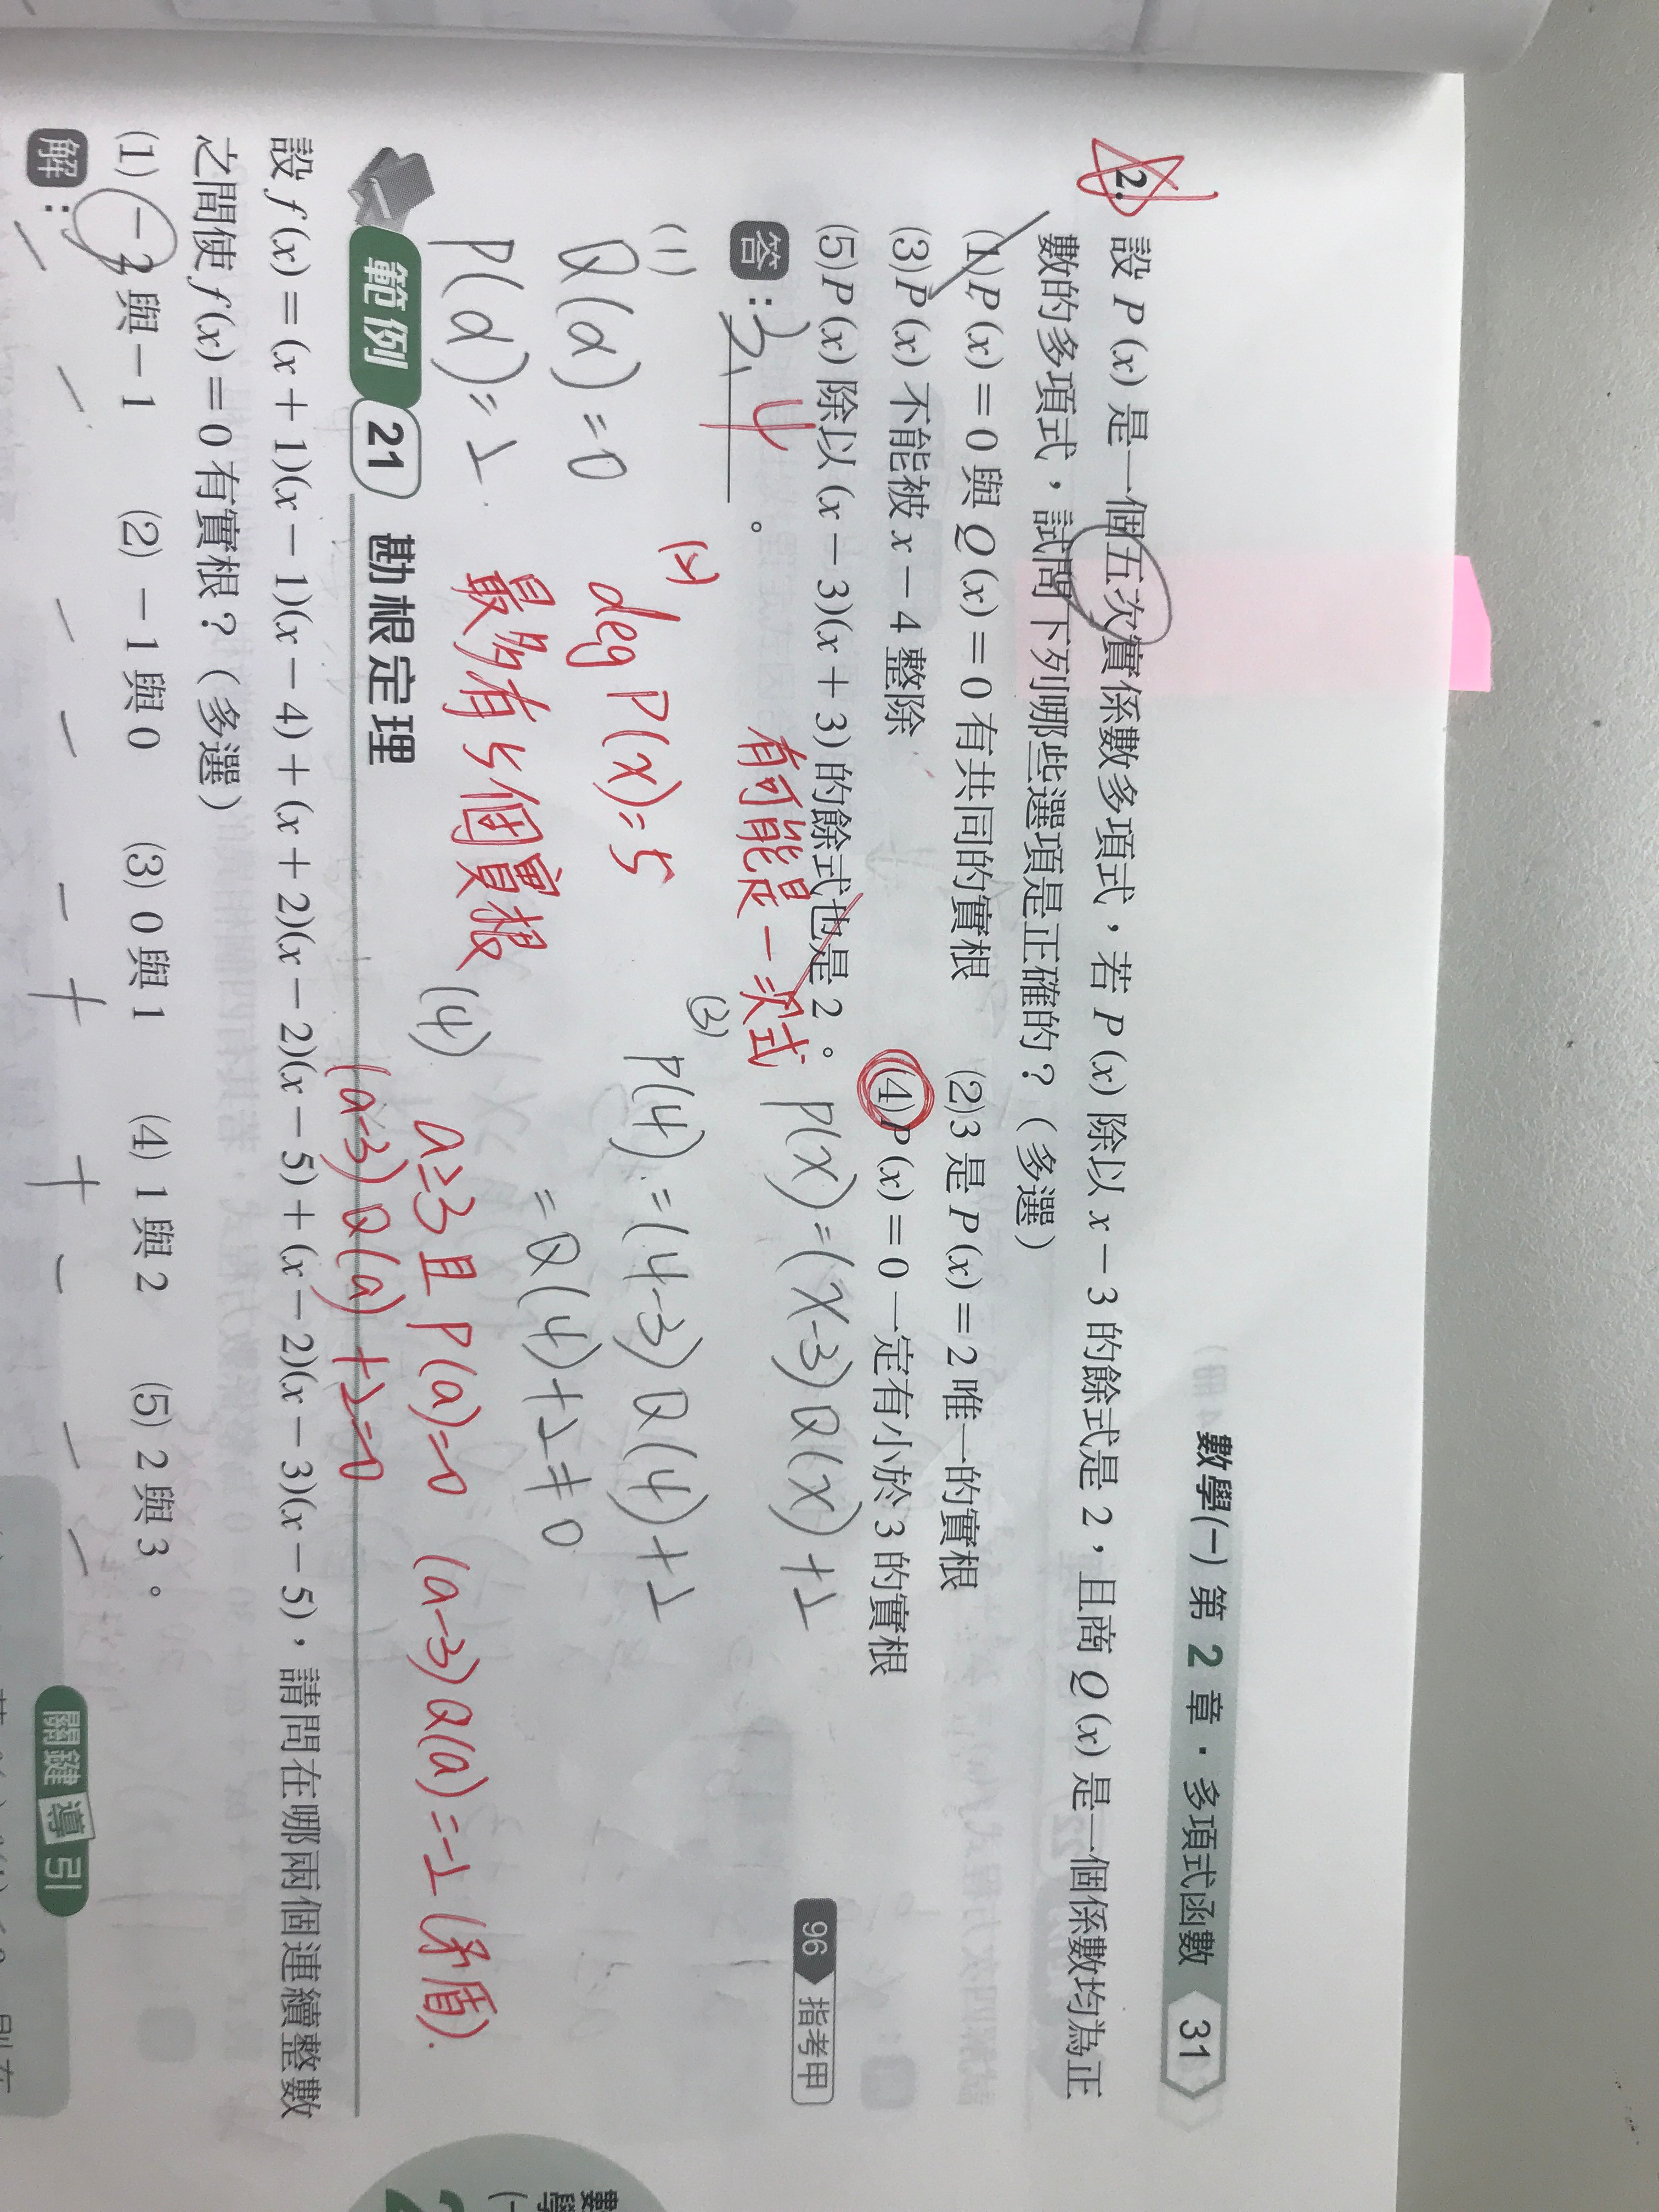 數學(一) 第 2 章・多項式函數 31
2. 設 P(x) 是一個五次實係數多項式,若 P(x) 除以 x－3 的餘式是 2,且商 Q(x) 是一個係數均為正
數的多項式,試問下列哪些選項是正確的?(多選)
(1)P(x)＝0 與 Q(x)＝0 有共同的實根 (2)3 是 P(x)＝2 唯一的實根
(3)P(x) 不能被 x－4 整除 (4)P(x)＝0 一定有小於 3 的實根
(5)P(x) 除以 (x－3)(x＋3) 的餘式也是 2。
96 指考甲
有可能是一次式
答:3,4。
P(x)=(x-3)Q(x)+2
(1)
Q(α)=0
P(α)=2
(2)
deg P(x)=5
最多有5個實根
(3)
P(4)=(4-3)Q(4)+2
=Q(4)+2≠0
(4)
a≥3 且 P(a)=0
(a-3)Q(a)=-2 (矛盾).
(a-3)Q(a)+2=0
範例 21 勘根定理
設 f(x)＝(x＋1)(x－1)(x－4)＋(x＋2)(x－2)(x－5)＋(x－2)(x－3)(x－5),請問在哪兩個連續整數
之間使 f(x)＝0 有實根?(多選)
(1)－2 與－1 (2)－1 與 0 (3) 0 與 1 (4) 1 與 2 (5) 2 與 3。
解:
－ － － － － ＋ ＋ － － －
關鍵導引
數學
(一
2